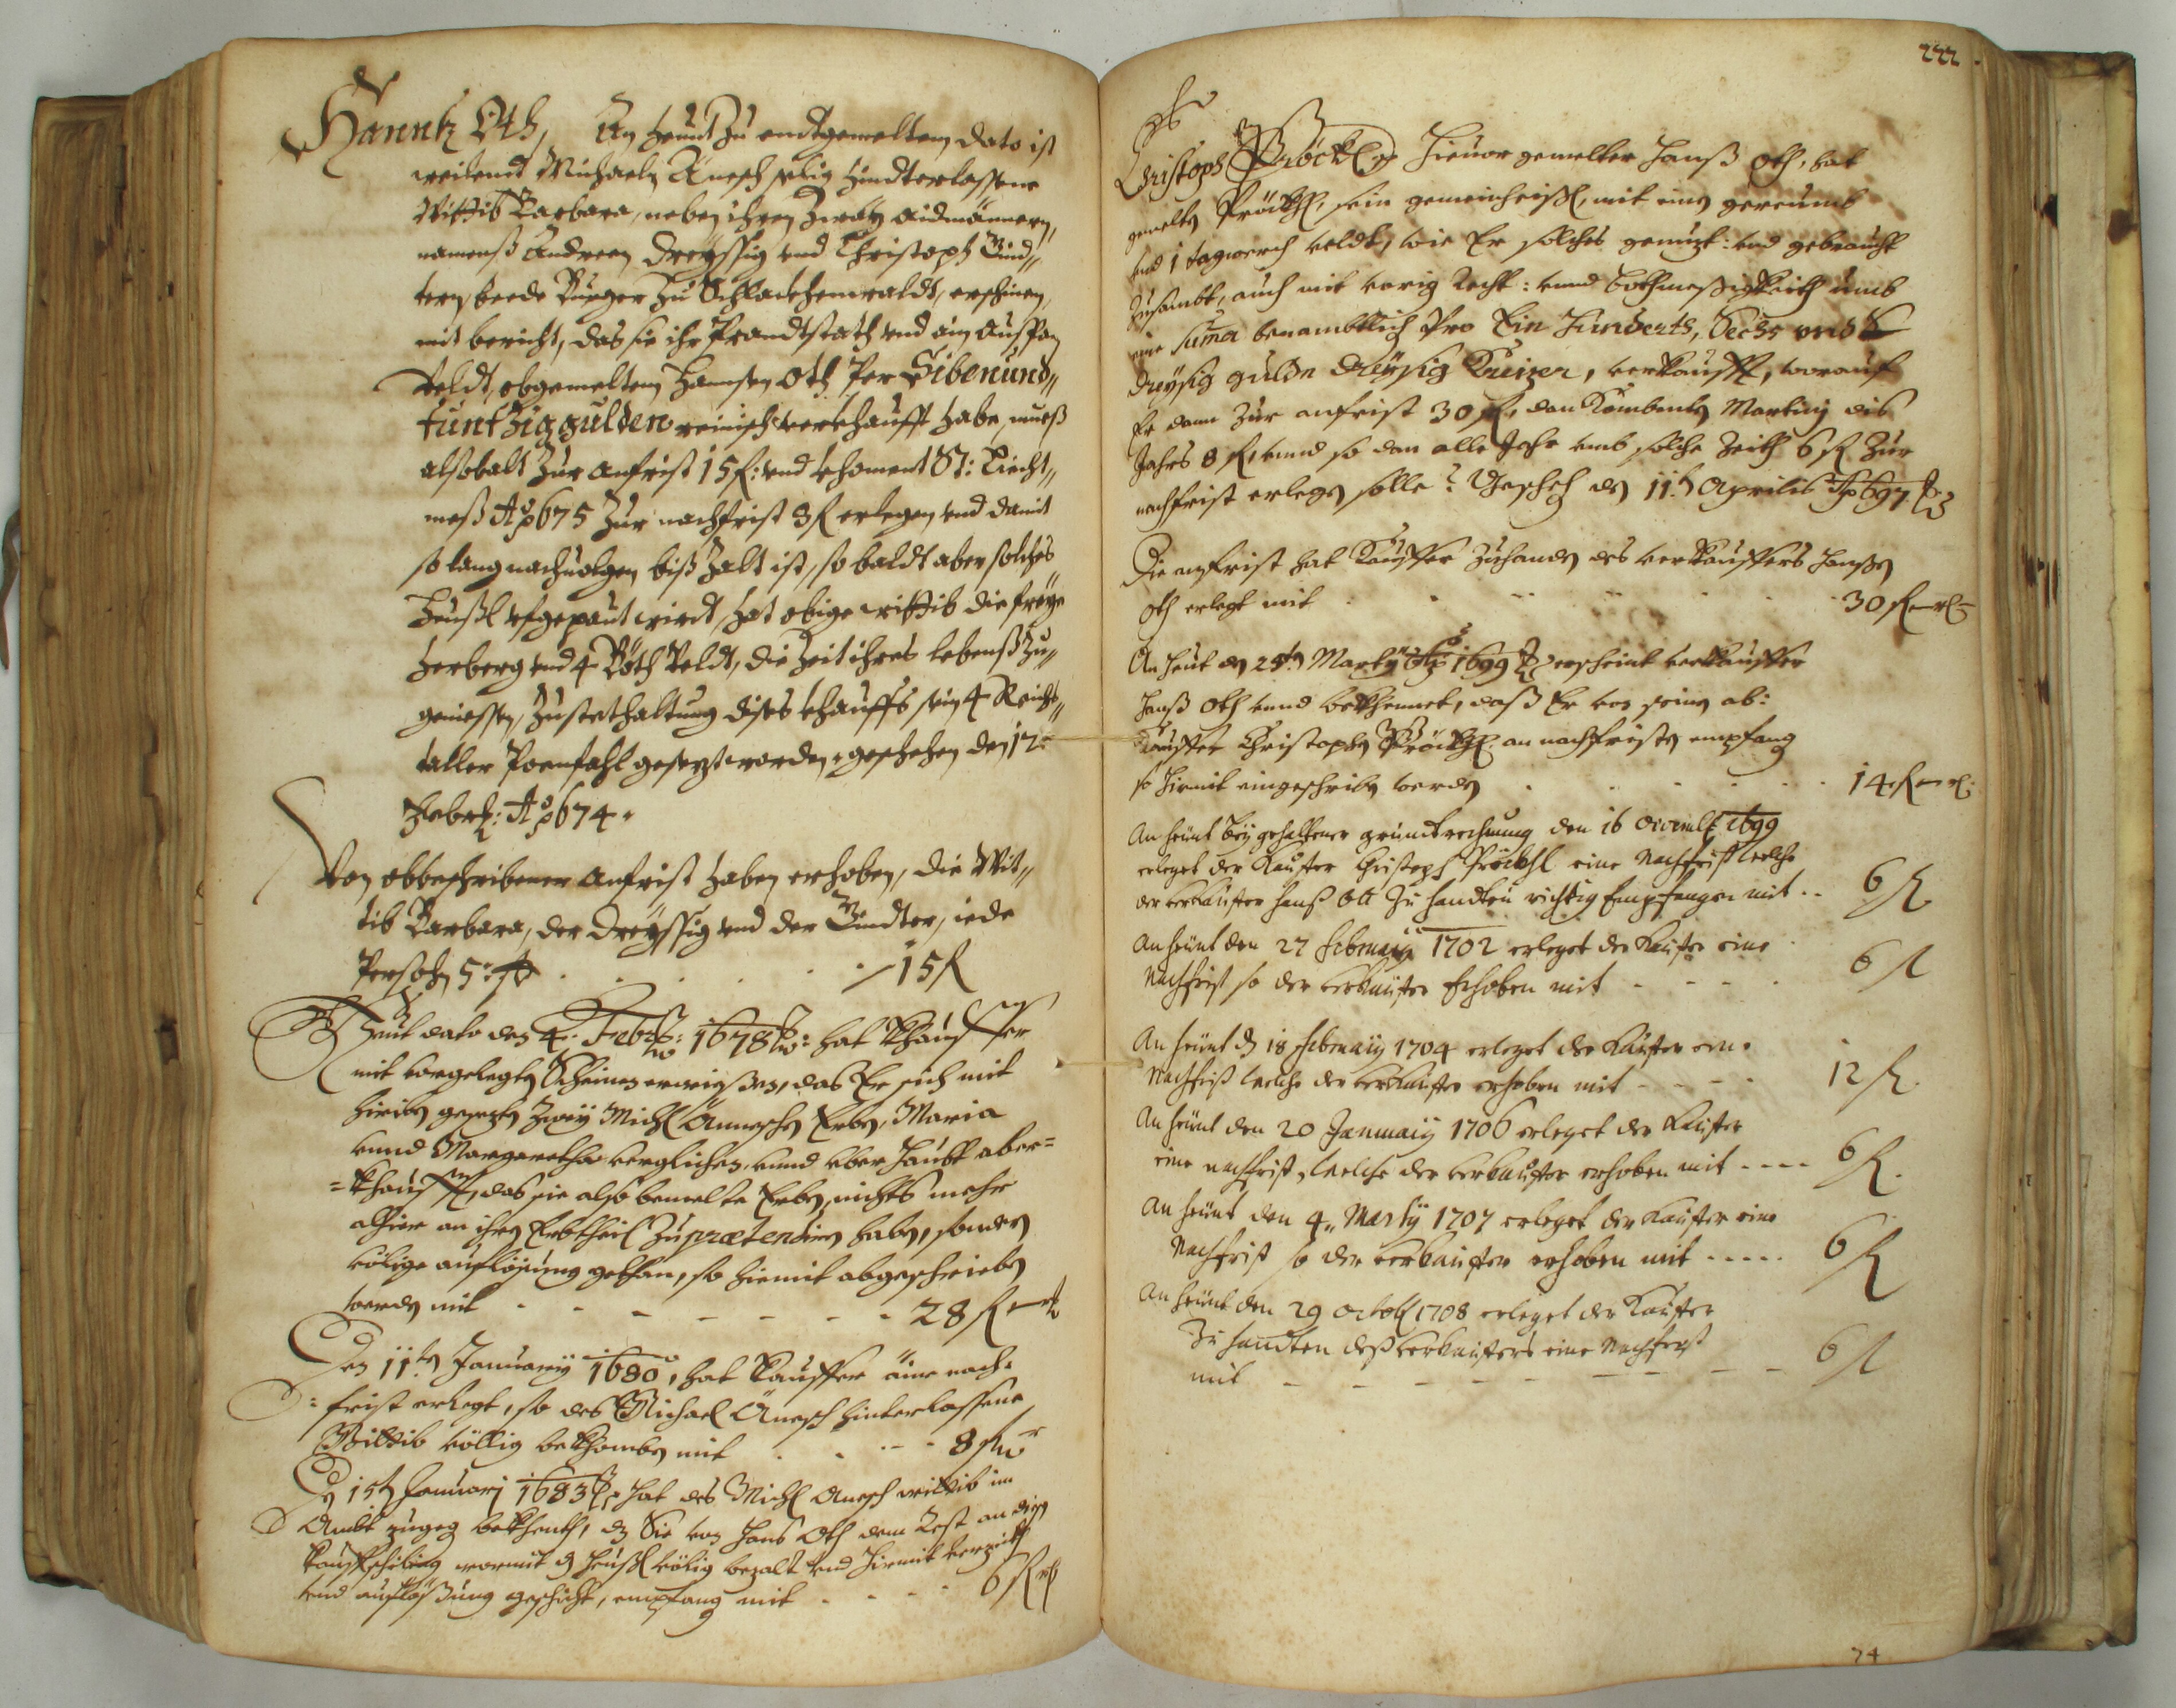 Hannß Oth, An heundt zu endtgemeltem dato ist
weilendt Michaeln Änesch selig hindterlassene
Wittib Barbara, neben ihren zwäy aidmännern,
namenß Andreen Dreyssig vnd Christoph Bind„
tern beede Burger zu Schlackhenwaldt, erschinen,
mit bericht, das sie ihr Prandtstath vnd ain
Veldt, obgemeltem Hannsen Oth per Sibenund„
funfzig gulden reinisch verkhaufft habe, mueß
alsobalt zur anfrist 15 f: vnd khoment St: Liecht„
meß Ao 675 zur nachfrist 3 f erlegen vnd damit
so lang nachuolgen biß zalt ist, so baldt aber solches
Heußl ufgepaut wirdt, hat obige wittib die freye
herberg vnd 4 Veldt, die zeit ihres lebenß zu„
geniessen, zu stethaltung dises khauffs sein 4 Reichs„
taller Poenfahl gesezt worden. geschehen den 12
Febr: Ao 674.
Von obbeschribener anfrist haben erhoben, die Wit„
tib Barbara, der Dreyssig vnd der Bindter, iede
Persohn 5 f . . . . . 15 f
Heut dato den 4. Febr: 1678 hat Khauffer
mit vorgelegten Scheinen erwießen, das Er sich mit
zwey Michl Änneschen Erben, Maria
vnnd Margaretha verglichen, vnnd aber-
=khaufft, das sie also bemelte Erben, nichts mehr
alhier an ihren Erbtheil zu prætendiren haben, sondern
völlige auflösung gethan, so hiemit abgeschrieben
werden mit - - - - - 28 f
Den 11ten January 1680, hat Kauffer aine nach=
=frist erlegt, so des Michael Änesch hinterlassene
Wittib völlig bekhomben mit . . - - 8 f
Den 15ten January 1683 hat des Michl Änesch wittib im
Ambt zugeg bekhendt, dz Sie von Hans Oth dem Rest an disen
kauffschiling wormit dz Heußl völlig bezalt vnd hiermit verzicht
vnd auflößung geschicht, empfang mit . - - 6 f
222
Christoph Pröckl Hieuor gemelter Hanß Oth, hat
gemelten Pröckhl, sein mit einen gereumb
vnd 1 tagwerch veldt, wie Er solches genuzt: vnd gebraucht
zusambt, auch mit vorig Recht: vnnd bothmessigkeith umb
eine Suma benambtlich Pro Ein Hunderth, Sechs vnd
dreysig gulden dreysig Creizer, verkaufft, worauf
Er dann zur anfrist 30 f, dan Kombenten Martiny dis
Jahrs 8 f, vnnd so dan alle Jahr umb solche Zeith 6 f zur
nachfrist erlegen solle. Gescheh den 11t Aprilis Ao 1697
Die anfrist hat Kauffer zuhanden des verkauffers Hanßen
Oth erlegt mit . . . . . . 30 f
An heut den 25ten Marty Ao 1699 erscheint verkauffer
Hanß Oth vnnd bekhennet, daß Er von seinen ab:
kauffer Christophen Pröckhl an nachfristen empfang
so hiemit eingeschriben werden . . . . . 14 f
An heünt beÿ gehaltener grundtrechnung den 16 Decembr 1699
erleget der Kauffer Christoph Pröckhl eine Nachfrist welche
der verkauffer Hanß Ott zu handten richtig Empfangen mit . . 6 f
An heünt den 27 february 1702 erleget der Kauffer eine
Nachfrist so der verkauffer Erhoben mit - - - . 6 f
An heünt d 18 february 1704 erleget der Kauffer eine
Nachfrist welche der verkauffer erhoben mit - - - - 12 f.
An heünt den 20 January 1706 erleget der Kauffer
eine nachfrist, welche der verkauffer erhoben mit - - - - 6 f.
An heünt den 4„ Marty 1707 erleget der Kauffer eine
Nachfrist so der verkauffer erhoben mit - - - - - 6 f
An heünt den 29 octobr 1708 erleget der Kauffer
zu handten deß verkauffers eine Nachfrist
mit - - - - - - - 6 f
74